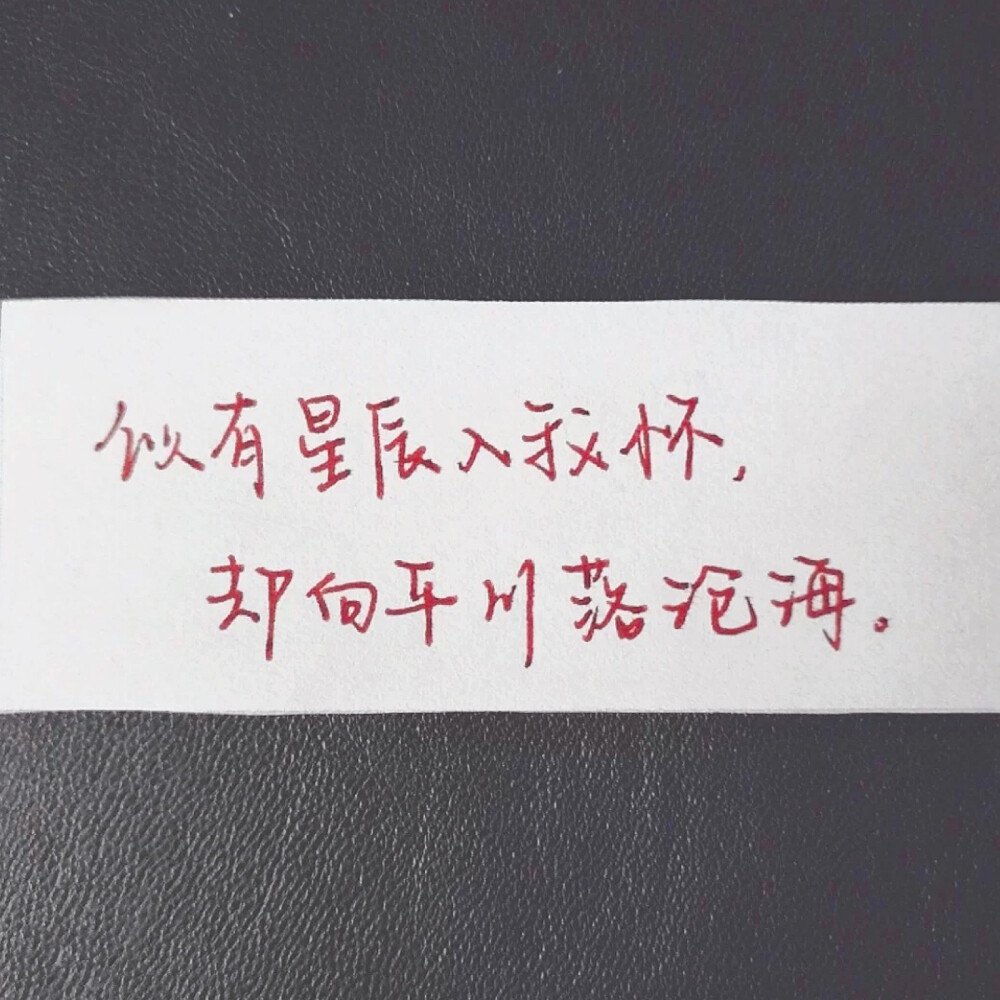 似有星辰入我怀，
却向平川落沧海。